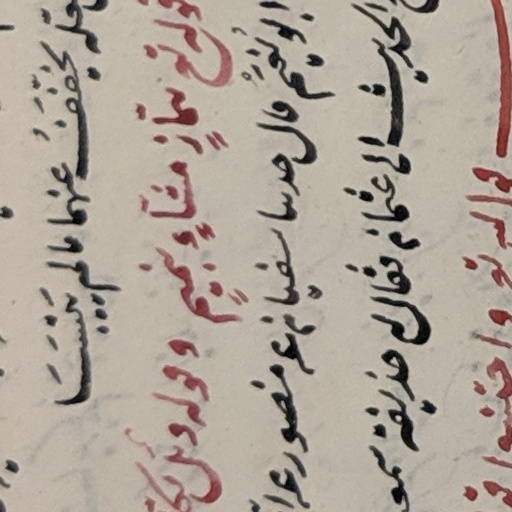 لعله يخفف عنهما ما لم ييبسا
قوله تع همّاز مشّاءٍ بنميمٍ وقوله ويل لكل
ابو نُعَيْم قال حدثنا سفيان عن منصور عن ا
الحديث الى عثمان فقال له حذيفة سمعت
قول الله تع واجتنبوا قول